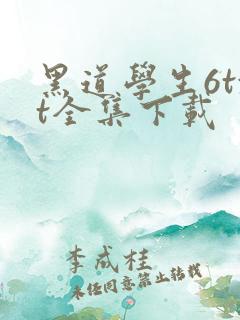 黑道學生6tx
t全集下載
李成桂
未經同意禁止轉載